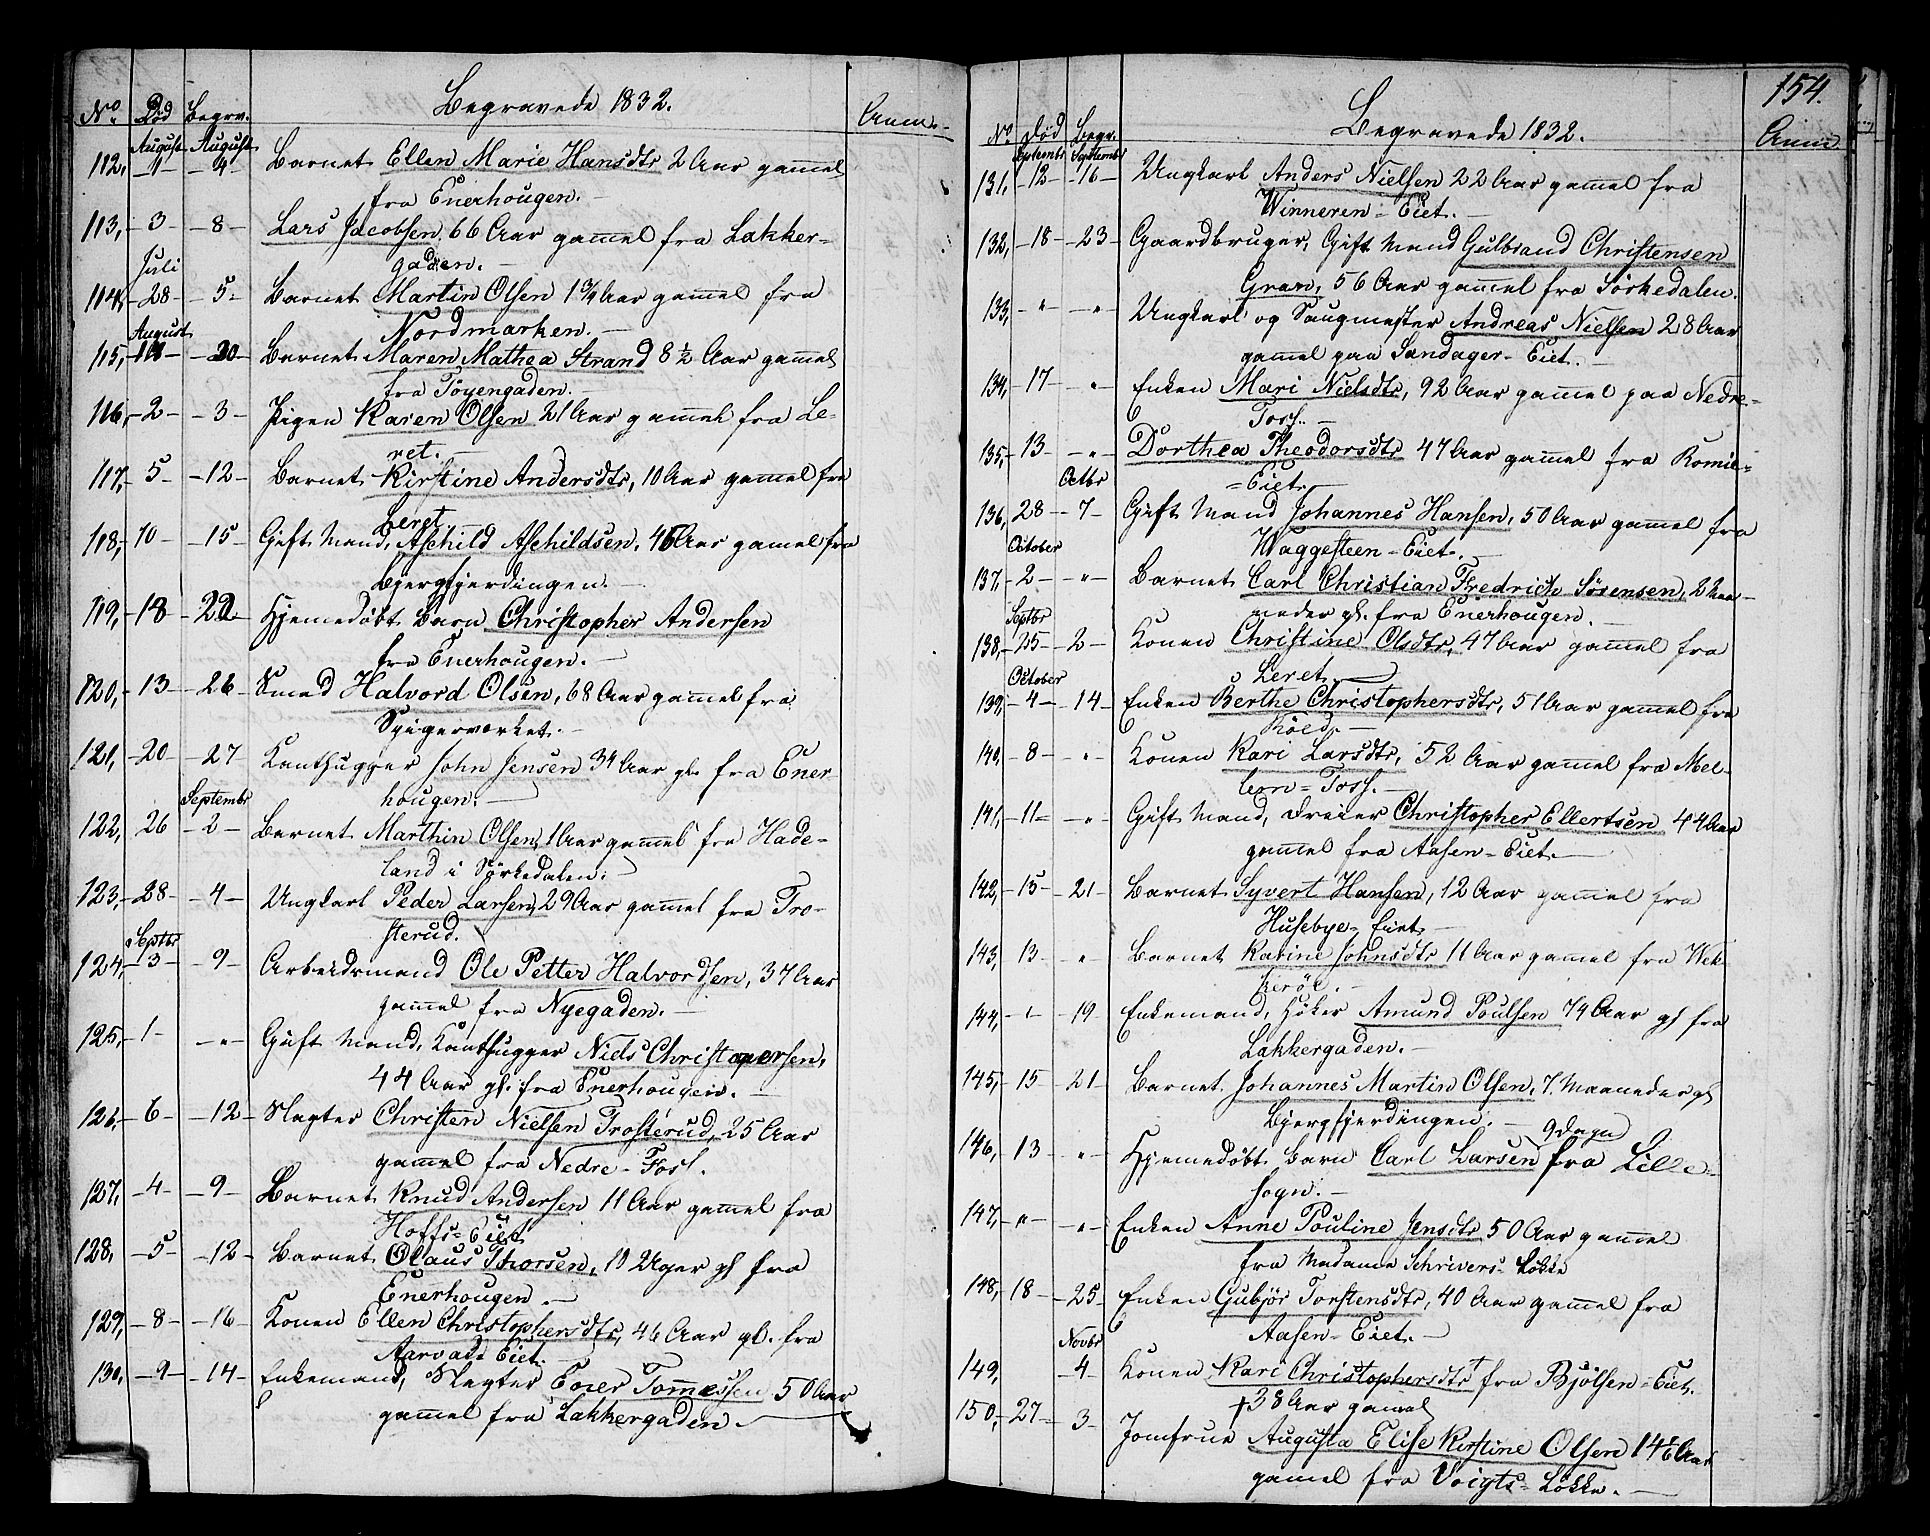 Begravede 1832.
No. Død Begrv. Anm.
August August
112, -1- -4- Barnet Ellen Marie Hansdtr 2 Aar gamel
fra Enerhougen.
113, 3- -8- Lars Jacobsen, 66 Aar gamel fra Lakker-
gaden.
Juli
114, -28- -5- Barnet Martin Olsen 1 3/4 Aar gamel fra
Nordmarken.
August
115, -20- Barnet Maren Mathea Strand 8 1/2 Aar gamel
fra Töyengaden.
116, -2- -3- Pigen Karen Olsen 21 Aar gamel fra Le-
ret.
117, -5- -12- Barnet Kirstine Andersdtr, 10 Aar gamel fra
Leret
118, -10- -15- Gift Mand, Aschild Aschildsen, 46 Aar gamel fra
Bjergfjerdingen.
119, -18- 22- Hjemedøbt Barn Christopher Andersen
fra Enerhougen.
120, -13- -26- Smed Halvord Olsen, 68 Aar gamel fra
Spigerværket.
121, -20- -27 Kanthugger John Jensen 34 Aar gl. fra Ener-
hougen.
Septembr
122, 26 -2- Barnet Marthin Olsen, 1 Aar gamel fra Hade-
land i Sørkedalen.
123, -28- -4- Ungkarl Peder Larsen, 29 Aar gamel fra Tro-
sterud.
Septbr
124, -3- -9- Arbeidsmand Ole Petter Halvordsen, 37 Aar
gamel fra Nyegaden.
125, 1- -"- Gift Mand, Kanthugger Niels Christopersen,
44 Aar gl. fra Enerhougen.
126, 6- -12- Slagter Christen Nielsen Trosterud, 25 Aar
gamel fra Nedre-Foss.
127, -4- -9- Barnet Knud Andersen 11 Aar gamel fra
Hoffs-Eiet
128, -5- -12- Barnet Olaus Thorsen, 10 Uger gl fra
Enerhougen.
129, -8- -16- Konen Ellen Christophersdtr, 46 Aar gl. fra
Eiet.
130, -9- -14- Enkemand, Slagter Tomessen 50 Aar
gamel fra Lakkergaden
154.
Begravede 1832.
No. Død Begr. Anm.
Septembr Septembr
131, -12- -16- Ungkarl Anders Nielsen 22 Aar gamel fra
Winneren-Eiet.
132, -18- -23- Gaardbruger, Gift Mand Gulbrand Christensen
Gran, 56 Aar gamel fra Sørkedalen.
133, -"- -"- Ungkarl og Saugmester Andreas Nielsen 28 Aar
gamel paa Sandager-Eiet.
134, -17- -"- Enken Mari Nielsdtr, 92 Aar gamel paa Nedre-
Foss.
135, -13- -"- Dorthea Theodorsdtr 47 Aar gamel fra
-Eiet.
Octbr
136, 28 -7- Gift Mand Johannes Hansen, 50 Aar gamel fra
Waggesteen-Eiet.
October
137, -2- -"- Barnet Carl Christian Fredrich Sørensen, 2 Maa-
neder gl. fra Enerhougen.
Septbr
138, -25- -2- Konen Christine Olsdtr, 47 Aar gamel fra
Leret
October
139, -4- -14- Enken Berthe Christophersdtr, 51 Aar gamel fra
Röed.
140, -8- -"- Konen Kari Larsdtr, 52 Aar gamel fra Mel-
lem-Foss.
141, -11- -"- Gift Mand, Dreier Christopher Ellertsen 44 Aar
gamel fra Aasen-Eiet.
142, -15- -21- Barnet Syvert Hansen, 12 Aar gamel fra
Husebye-Eiet
143, 13- -"- Barnet Karine Johnsdtr 11 Aar gamel fra Wek-
kerøe.
144, -"- -19 Enkemand, Höker Amund Poulsen 74 Aar gl fra
Lakkergaden.
145, -15 -21- Barnet Johannes Martin Olsen, 7. Maaneder gl
Bjergfjerdingen.
9 Dage
146, 13 -"- Hjemedøbt Barn Carl Larsen fra Lille-
sogn.
147, -"- -"- Enken Anne Pouline Jensdtr 50 Aar gamel
fra Madame Schrivers-Løkke
148, 18- -25- Enken Gubjør Torstensdtr, 40 Aar gamel fra
Aasen-Eiet.
Novbr
149, -4- Konen Kari Christophersdtr + fra Bjölsen-Eiet.
+ 38 Aar gamel
150, -27- 3- Jomfrue Augusta Elise Kirstine Olsen 14 1/2 Aar
gamel fra Voigts-Løkke.